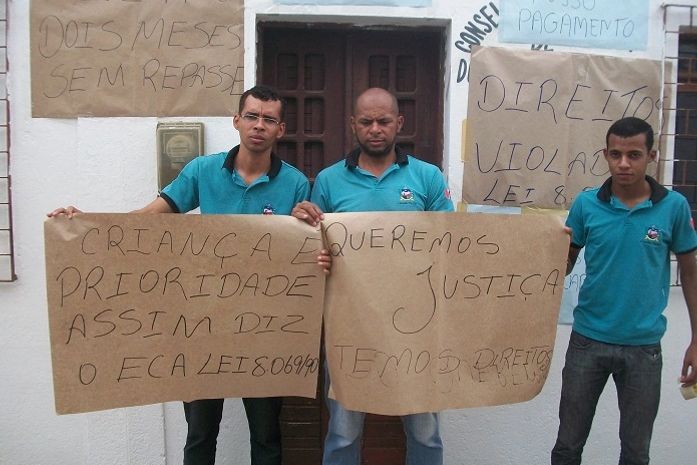 DOIS MESES
SEM REPASSE
CONSEL
PAGAMENTO
DIREITOS
VIOLAD
LEI 8.
CRIANÇA E
PRIORIDADE
ASSIM DIZ
O ECA LEI 8069/90
QUEREMOS
JUSTIÇA
TEMOS DIREITOS